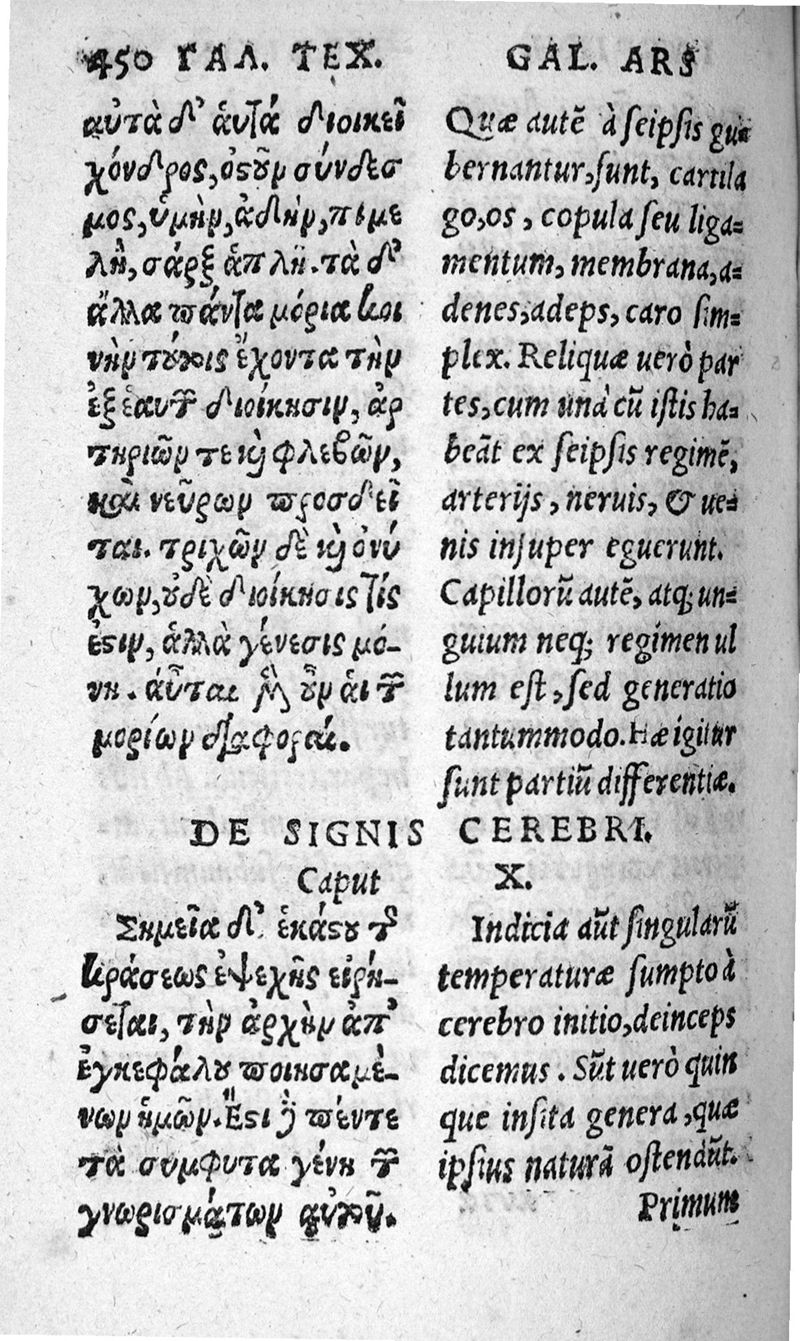 450 ΓΑΛ. ΤΕΧ.
αὐτὰ δ' ἁυτὰ διοικεῖ
χόνδρος, ὀστοῦν σύνδεσ
μος, ὑμὴν, ἀδὴν, πιμε
λὴ, σάρξ ἁπλῆ. τὰ δ'
ἄλλα πάντα μόρια κοι
νὴν τούτοις ἔχοντα τὴν
ἐξ ἑαυτῶν διοίκησιν, ἀρ
τηριῶν τε καὶ φλεβῶν,
καὶ νεῦρων προσδεῖ
ται. τριχῶν δὲ καὶ ὀνύ
χων, οὐδὲ διοίκησις τίς
ἐστιν, ἀλλὰ γένεσις μό-
νη. αὗται μὲν οὖν ἁι τῶν
μορίων διαφοραί.
GAL. ARS
Quæ autẽ à seipsis gu
bernantur, sunt, cartila
go, os, copula seu liga=
mentum, membrana, a=
denes, adeps, caro sim=
plex. Reliquæ uerò par
tes, cum unà cũ istis ha=
beãt ex seipsis regimẽ,
arterijs, neruis, & ue=
nis insuper eguerunt.
Capillorũ autẽ, atq; un=
guium neq; regimen ul
lum est, sed generatio
tantummodo. Hæ igitur
sunt partiũ differentiæ.
DE SIGNIS CEREBRI.
Caput X.
Σημεῖα δ' ἑκάστου τῶν
κράσεως ἐφεξῆς εἰρή-
σεται, τὴν ἀρχὴν ἀπ'
ἐγκεφάλου ποιησαμέ-
νων ἡμῶν. Ἔστι δὲ πέντε
τὰ συμφυτα γένη τῶν
γνωρισμάτων αὐτοῦ.
Indicia aũt singularũ
temperaturæ sumpto à
cerebro initio, deinceps
dicemus. Sũt uerò quin
que insita genera, quæ
ipsius naturã ostendũt.
Primum